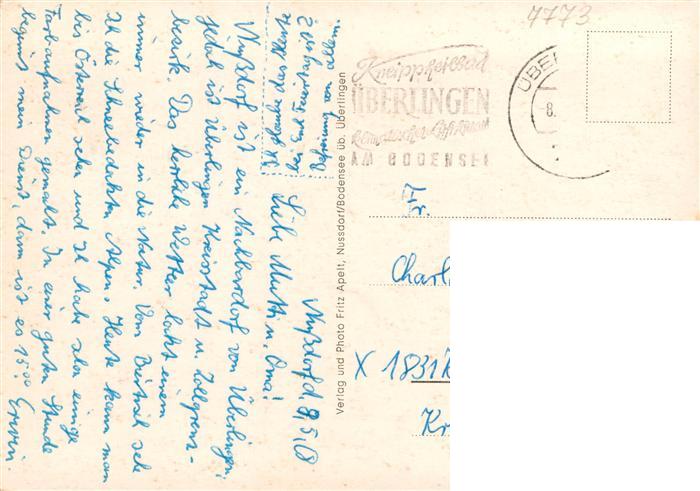 4773
Kneippheilbad
ÜBERLINGEN
AM BODENSEE
ÜBER
8.
Fr.
Charl
X 1831
Kr
Verlag und Photo Fritz Apelt, Nussdorf/Bodensee üb. Überlingen
Nußdorf d. 8.5.68
Liebe Mutti u. Oma!
Nußdorf ist ein Nachbardorf von Überlingen,
jetzt ist Überlingen Kreisstadt u. Zollgrenz-
bezirk. Das herrliche Wetter lockt einem
immer wieder in die Natur. Vom sehe
ich die Schneebedeckten Alpen. Heute kann man
bis Österreich sehen und ich habe schon einige
Farbaufnahmen gemacht. In einer guten Stunde
beginnt mein Dienst, dann ist es 15°° Erwin.